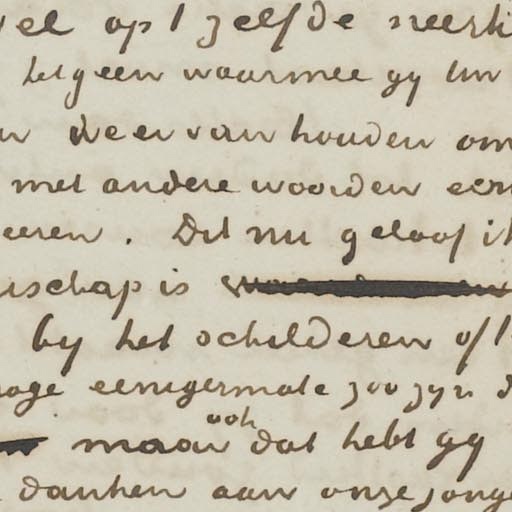 op 't zelfde neerk
hetgeen waarmee gy Uw
weer van houden om
met andere woorden een
eeren. Dit nu geloof ik
schap is
by het schilderen of 't
eenigermate zoo zyn d
maar ook dat hebt gy
danken aan onze jonge